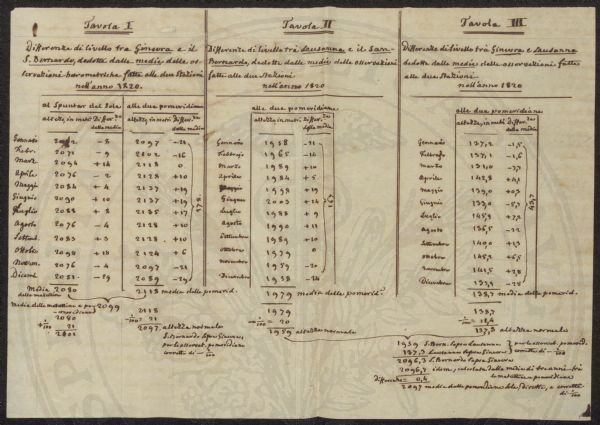 Tavola I
Differenze di livello tra Ginevra e il
S. Bernardo, dedotte dalle medie delle os-
servazioni barometriche fatte alle due Stazioni
nell'anno 1820.
al Spuntar del Sole
alle due pomeridiane
altezze, in metri Differ.ze
dalla media
altezze, in metri Differ.ze
dalla media
Gennaio - 8 2097 - 21
Febr. 2071 - 9 2102 - 16
Marz. 2094 + 14 2118 0
Aprile 2076 - 2 2128 + 10
Maggio 2084 + 4 2137 + 19
Giugno 2090 + 10 2137 + 19
Luglio 2088 + 8 2135 + 17
Agosto 2076 - 4 2128 + 10
Settemb. 2083 + 3 2128 + 10
Ottobr. 2098 + 18 2124 + 6
Novem. 2076 - 4 2097 - 21
Dicem. 2051 - 29 2089 - 29
Media 2080
delle mattutine
2118 media delle pomerid.
2099
2080
+ 1/100 21
2101
2118
- 1/100 = 21
2097 altezza normale
S. Bernardo sopra Ginevra
per le osservat. pomeridiane
corrette di - 1/100
Tavola II
Differenze di livello trà Lausanna e il San-
Bernardo, dedotte dalle medie delle osservazioni
fatte alle due Stazioni
nell'anno 1820
alle due pomeridiane
altezze in metri Differ.ze
dalla media
Gennaio 1958 - 21
Febbrajo 1965 - 14
Marzo 1979 0
Aprile 1984 + 5
Maggio 1998 + 19
Giugno 2003 + 24
Luglio 1988 + 9
Agosto 1990 + 11
Settembre 1984 + 5
Ottobre 1979 0
Novembre 1959 - 20
Dicembre 1958 - 24
1979 media delle pomerid.e
1979
- 1/100 = 20
1959 altezza normale
Tavola III
Differenze di livello trà Ginevra e Lausanna
dedotte dalle medie delle osservazioni fatte
alle due Stazioni
nell'anno 1820
alle due pomeridiane
altezze, in metri Differ.ze
dalla media
Gennaio 137,2 - 1,5
Febbrajo 137,1 - 1,6
Marzo
Aprile 142,8 + 4,1
Maggio 139,0 + 0,3
Giugno
Luglio 145,9 + 7,2
Agosto 136,5 - 2,2
Settembre 140,0 + 1,3
Ottobre 145,2 + 6,5
Novembre 141,5 + 2,8
Dicembre
138,7 media delle pomerid.
138,7
- 1/100 =
137,3 altezza normale
1959 S. Bern. sopra Lausanna
137,3 Lausanna sopra Ginevra
per le osservat. pomeridiane
corrette di - 1/100
2096,3 S. Bernardo sopra Ginevra
2096,7 idem, calcolata dalla media di tre anni trà
le mattutine e pomeridiane
differenza = 0,4
2097 media delle pomeridiane sole, diretta, e corretta
di - 1/100